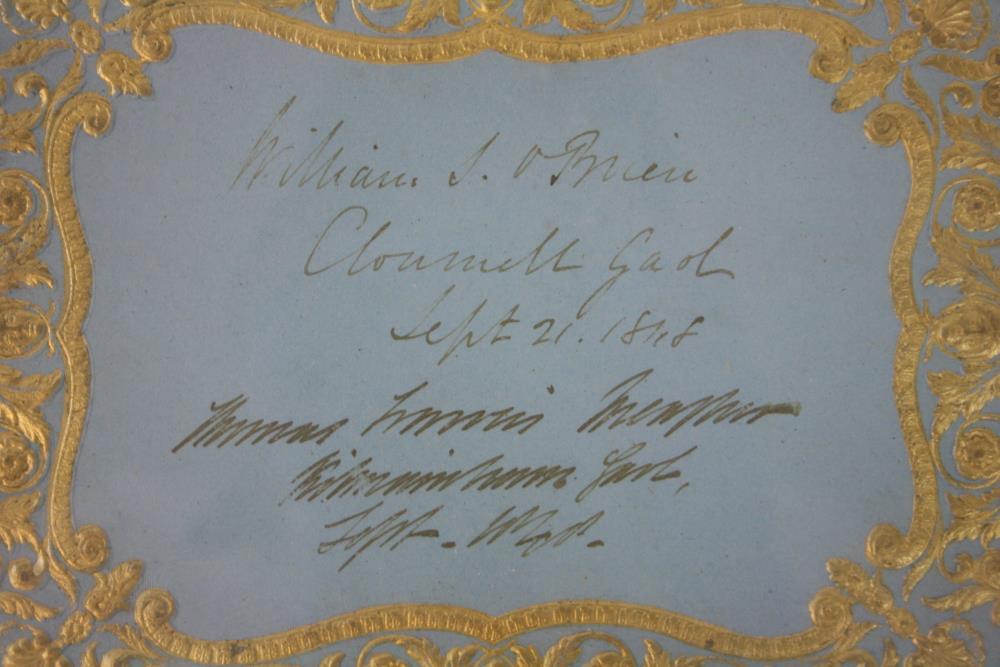 William S. O'Brien
Clonmell Gaol
Sept 21. 1848
Thomas Francis Meagher
Kilmainham Gaol,
Sept -